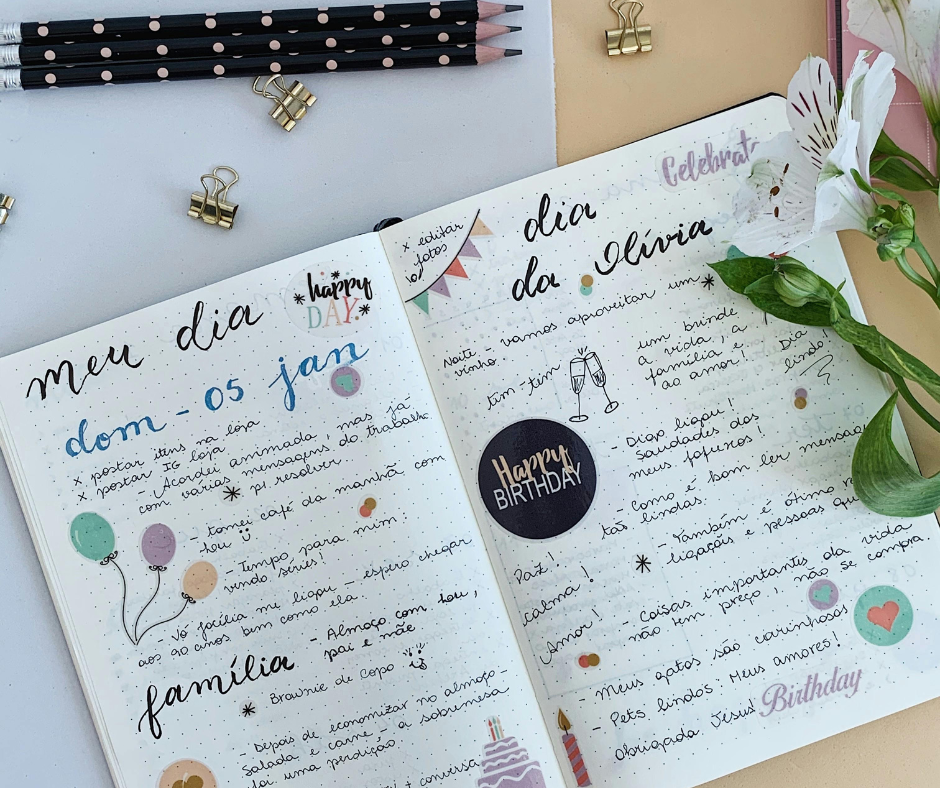 meu dia
happy
DAY.
dom - 05 jan
x postar itens na loja
x postar IG loja
- Acordei animada, mas já
com várias mensagens do trabalho
p/ resolver.
- tomei café da manhã com
heu
- Tempo para mim:
vendo séries!
- Vó Jocília me ligou - espero chegar
aos 90 anos bem como ela.
família
- Almoço com heu,
pai e mãe
Brownie de Copo
- Depois de economizar no almoço -
salada e carne - a sobremesa
foi uma perdição.
+ conversa
x editar
fotos
Celebrat
dia
da Olívia
Noite - vamos aproveitar um
vinho.
tim-tim
um brinde
à vida, à
família e
ao amor!
Dia
lindo!
Happy
BIRTHDAY
- Diago ligou!
Saudades dos
meus fofuxos!
- Como é bom ler mensagens
tão lindas.
- Também é ótimo
ligações e pessoas que
Paz!
calma!
Amor!
- Coisas importantes da vida
não tem preço, não se compra
- Meus gatos são carinhosos
- Pets lindos: Meus amores!
Obrigada Jesus!
Birthday